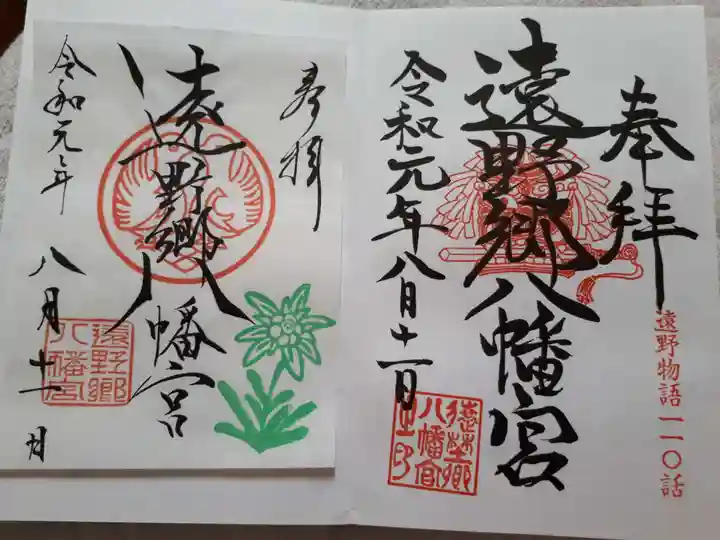 奉拝
遠野郷八幡宮
令和元年八月十一日
遠野物語一一〇話
遠野郷
八幡宮
之印
奉拝
遠野郷八幡宮
令和元年
八月十一日
遠野郷
八幡宮